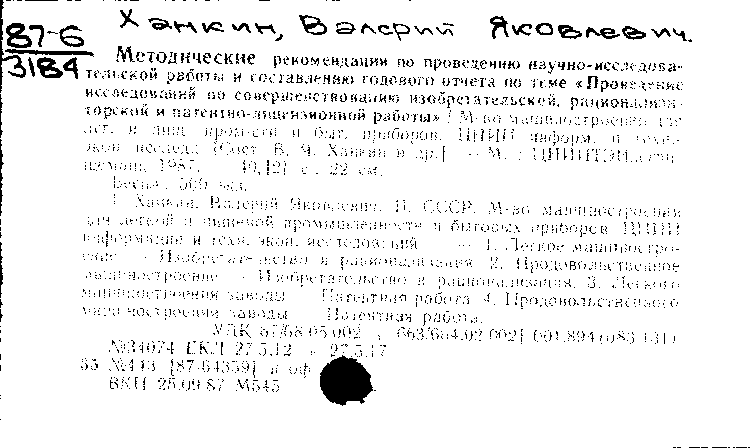 Ханкин, Валерий Яковлевич.
87-6
3184
Методические рекомендации по проведению научно-исследова-
тельской работы и составлению годового отчета по теме «Проведение
исследований по совершенствованию изобретательской, рационализа-
торской и патентно-лицензионной работы» / М-во машиностроения для
лег. и пищ. пром-сти и быт. приборов, ЦНИИ информ. и техн.-
экон. исслед. [Сост. В. Я. Ханкин и др.]. — М. : ЦНИИТЭИлегпи-
щемаш, 1987. — 40,[2] с. ; 22 см.
Беспл. 500 экз.
I. Ханкин, Валерий Яковлевич. II. СССР. М-во машиностроения
для легкой и пищевой промышленности и бытовых приборов. ЦНИИ
информации и техн.-экон. исследований. — 1. Легкое машиностро-
ение — Изобретательство и рационализация. 2. Продовольственное
машиностроение — Изобретательство и рационализация. 3. Легкого
машиностроения заводы — Патентная работа. 4. Продовольственного
машиностроения заводы — Патентная работа.
УДК 67/68.05.002 + 663/664.02.002] 001.894(083.131)
№34074 ЕКЛ 27.5.12 + 27.5.17
55 №443 [87-64359] п оф
ВКП 25.09.87 М545